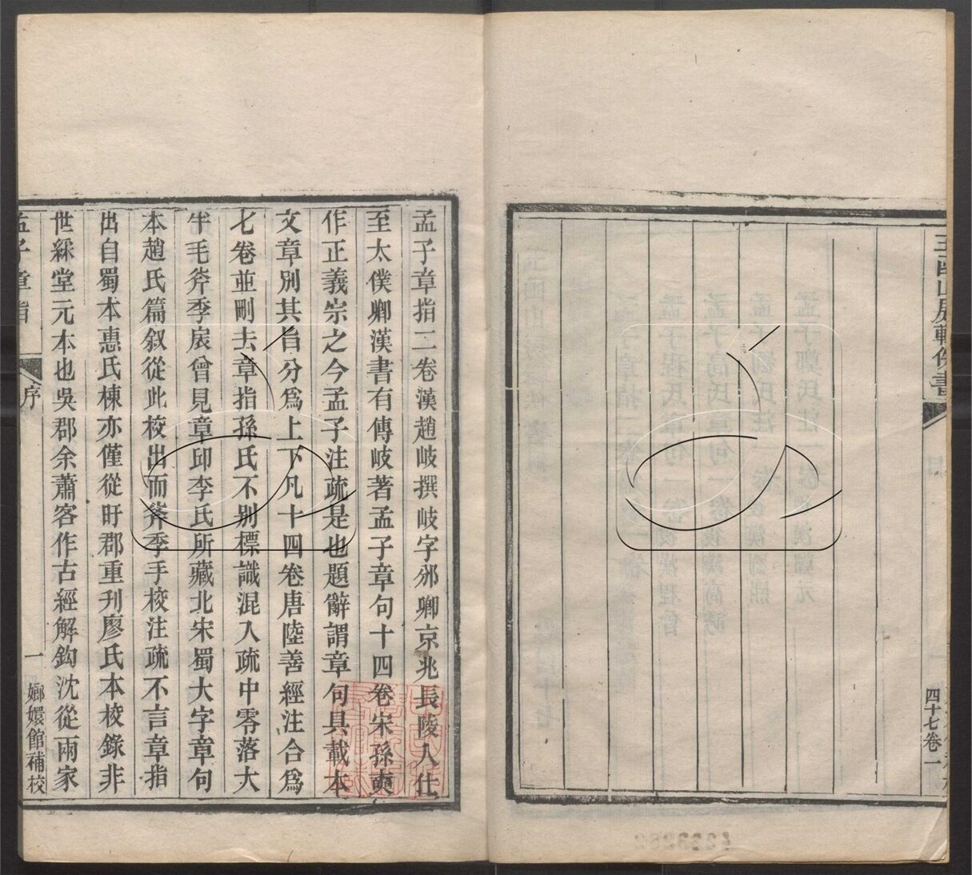 玉函山房輯佚書
四十七卷一
孟子章指二卷漢趙岐撰岐字邠卿京兆長陵人仕
至太僕卿漢書有傳岐著孟子章句十四卷宋孫奭
作正義宗之今孟子注疏是也題辭謂章句具載本
文章別其旨分爲上下凡十四卷唐陸善經注合爲
七卷並刪去章指孫氏不別標識混入疏中零落大
半毛斧季扆曾見章邱李氏所藏北宋蜀大字章句
本趙氏篇叙從此校出而斧季手校注疏不言章指
出自蜀本惠氏棟亦僅從盱郡重刊廖氏本校錄非
世綵堂元本也吳郡余蕭客作古經解鈎沈從兩家
孟子章指
序
一
嫏嬛館補校